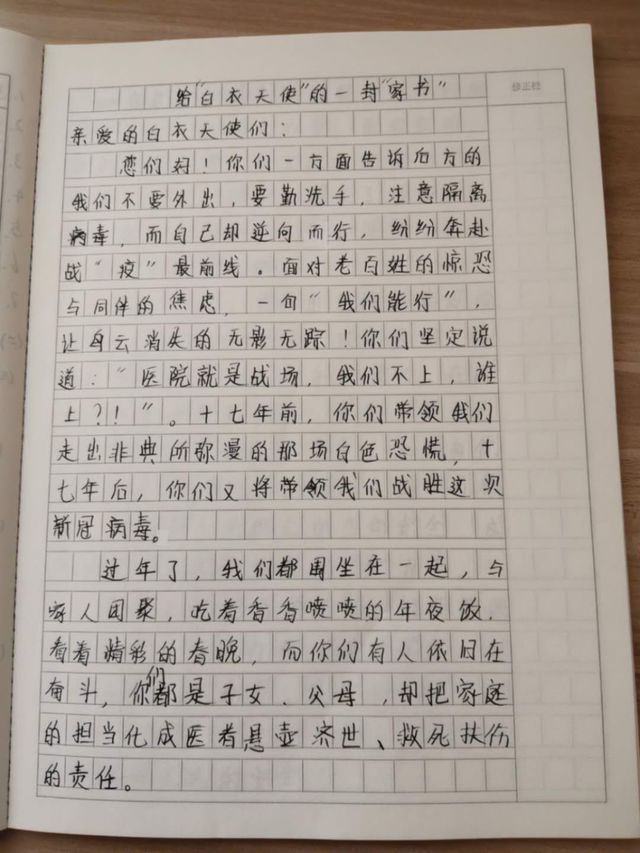 给"白衣天使"的一封"家书"
修正栏
亲爱的白衣天使们：
您们好！你们一方面告诉后方的
我们不要外出，要勤洗手，注意隔离
病毒，而自己却逆向而行，纷纷奔赴
战"疫"最前线。面对老百姓的惊恐
与同伴的焦虑，一句"我们能行"，
让乌云消失的无影无踪！你们坚定说
道："医院就是战场，我们不上，谁
上？！"。十七年前，你们带领我们
走出非典所弥漫的那场白色恐慌，十
七年后，你们又将带领我们战胜这次
新冠病毒。
过年了，我们都围坐在一起，与
家人团聚，吃着香香喷喷的年夜饭，
看着精彩的春晚，而你们有人依旧在
奋斗，你们都是子女、父母，却把家庭
的担当化成医者悬壶济世、救死扶伤
的责任。